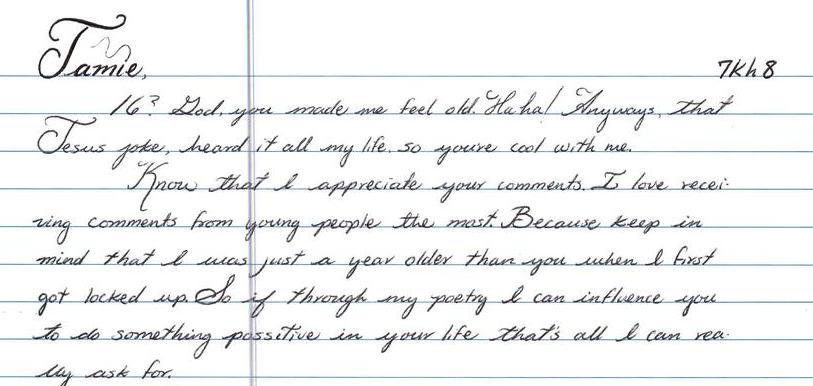 Jamie,
7Kh8
16? God, you made me feel old. Haha! Anyways, that
Jesus joke, heard it all my life, so youre cool with me.
Know that I appreciate your comments. I love recei-
ving comments from young people the most. Because keep in
mind that I was just a year older than you when I first
got locked up. So if through my poetry I can influence you
to do something possitive in your life that's all I can rea-
lly ask for.